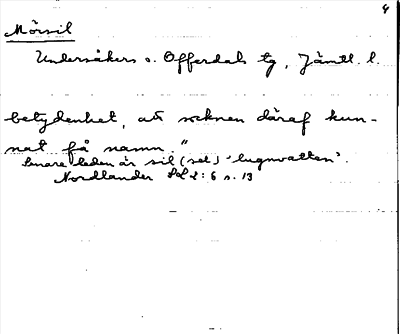 4
Mörsil
Undersåkers o. Offerdals tg, Jämtl. l.
betydenhet, att socknen däraf kun-
nat få namn."
Senare leden är sil (sel) 'lugnvatten'.
Nordlander 2:6 s. 13